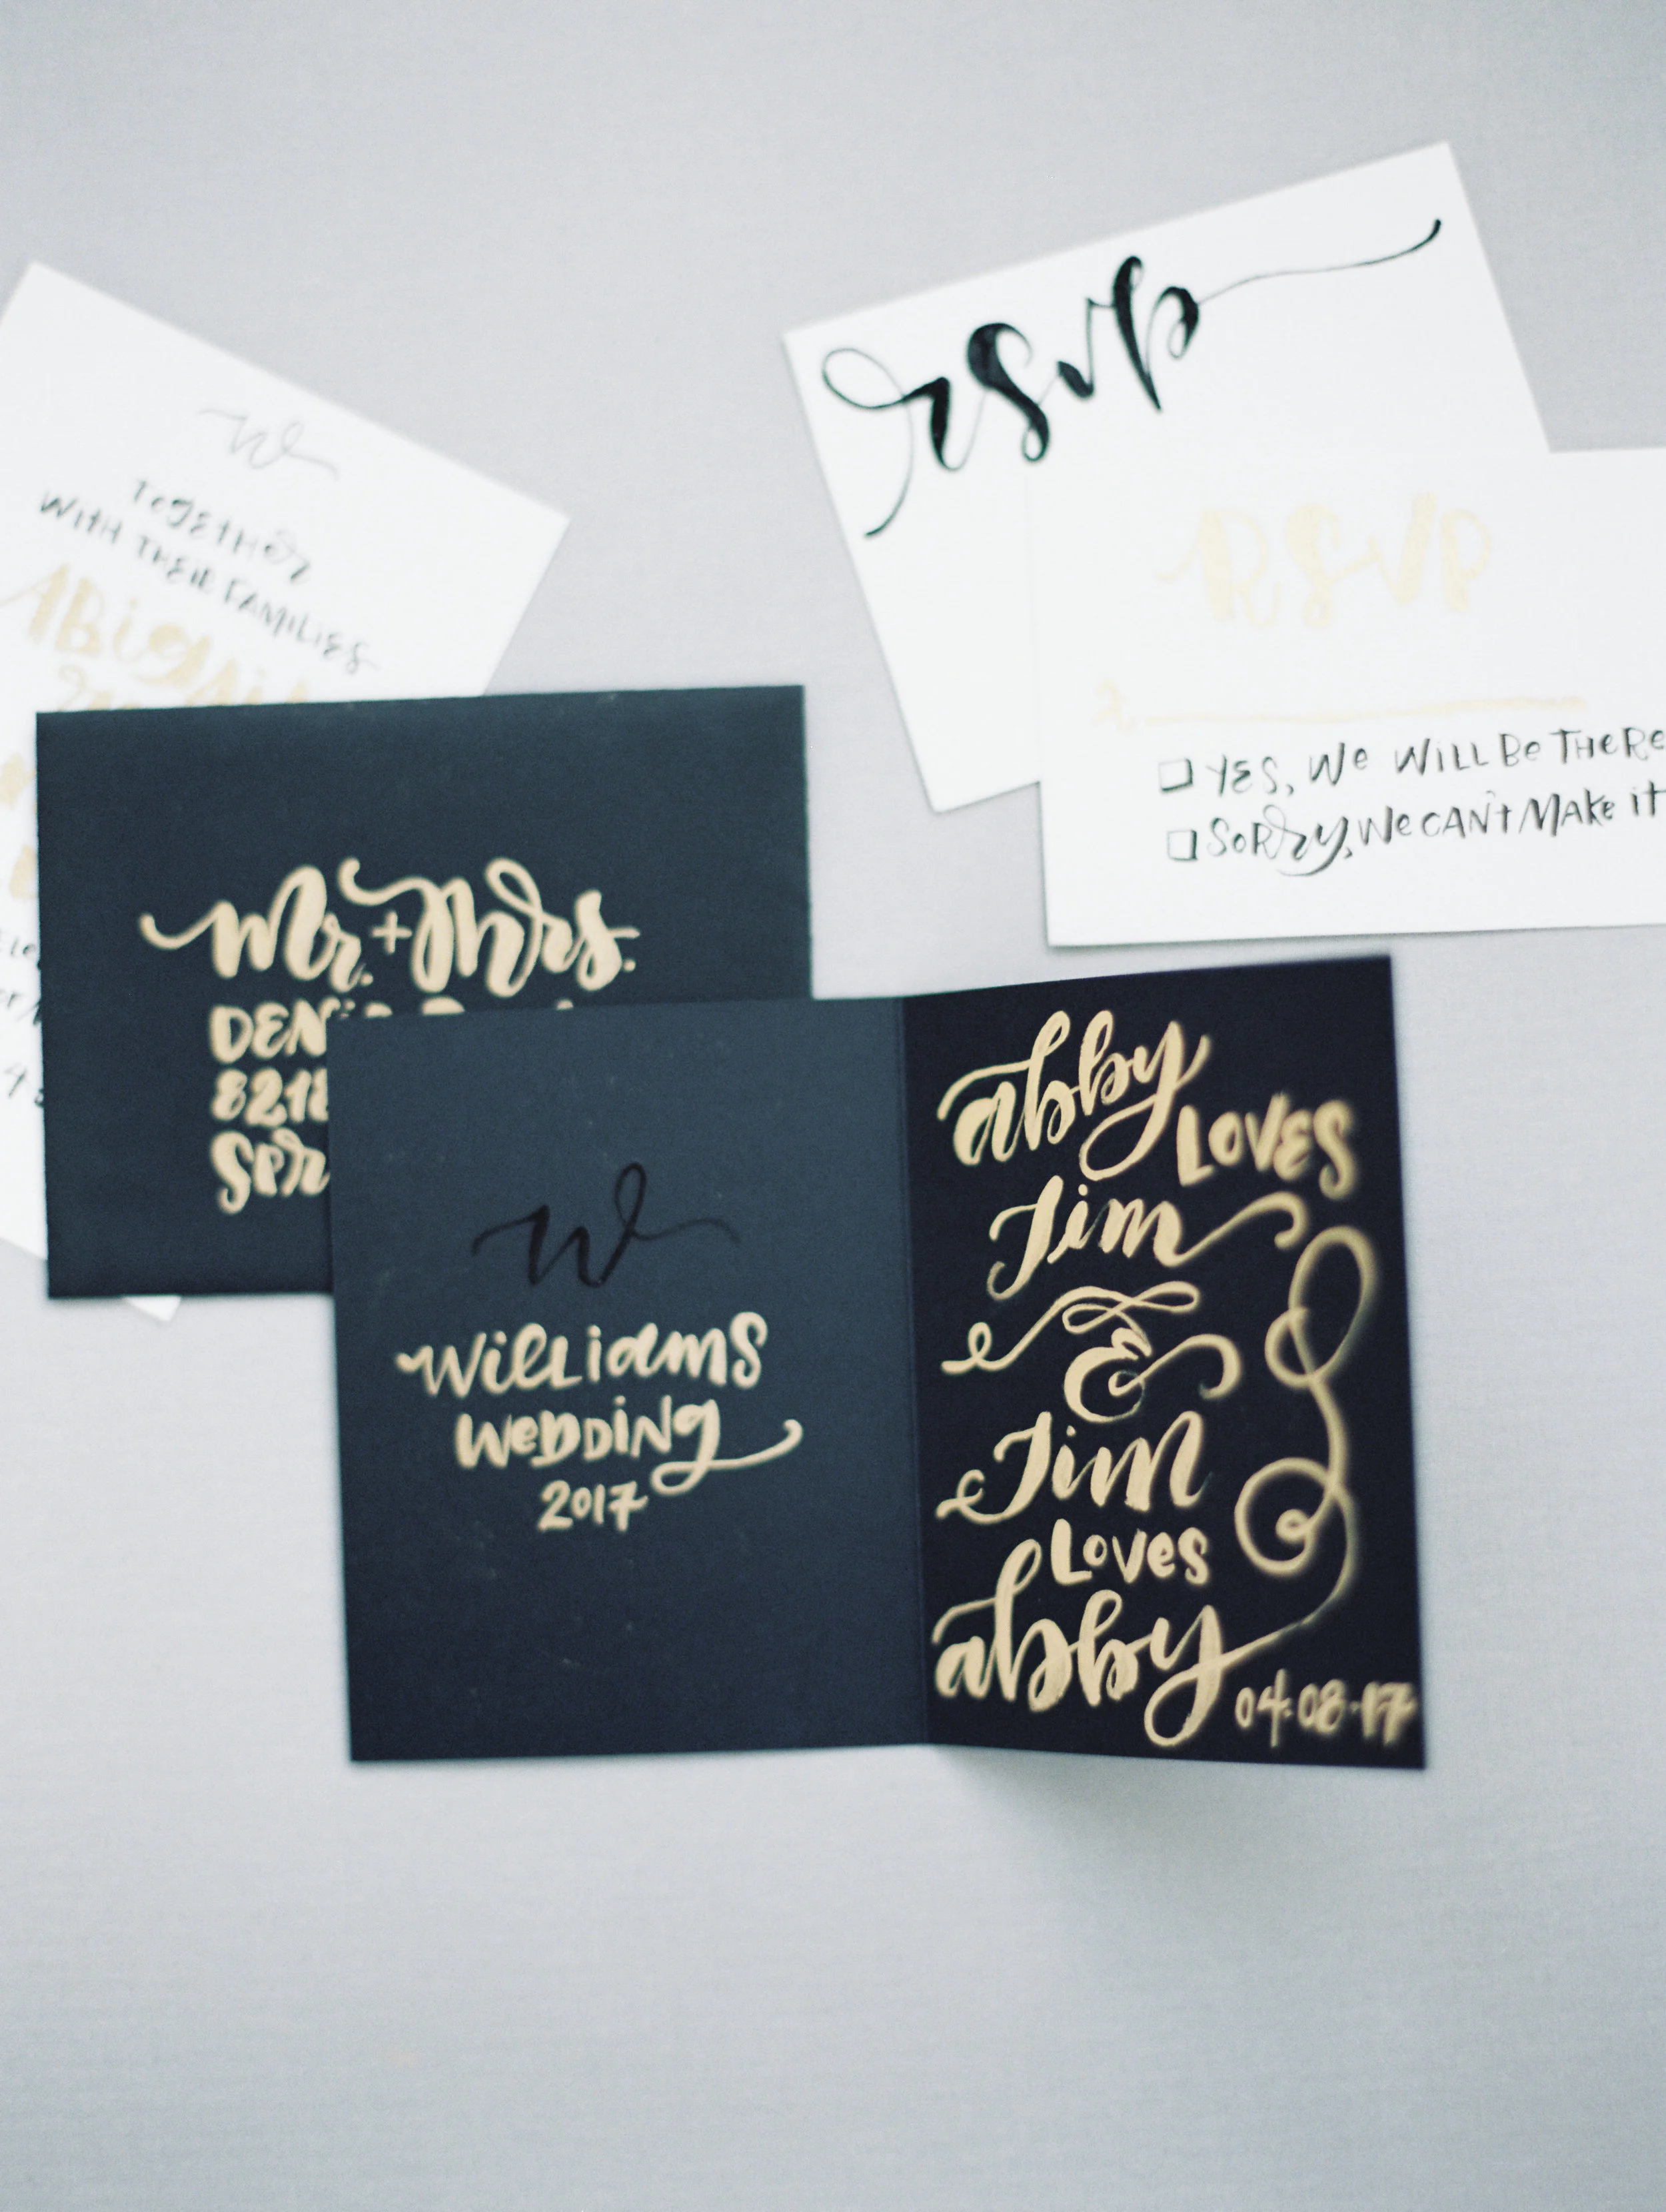 W
TOGETHER
WITH THEIR FAMILIES
rsvp
RSVP
YES, We WILL Be THeRe
SORRy, We CAN't MAke it
Mr. + Mrs.
8218
W
WilliamS
WeDDiNg
2017
abby
LOVES
Jim
&
Jim
Loves
abby
04.08.17